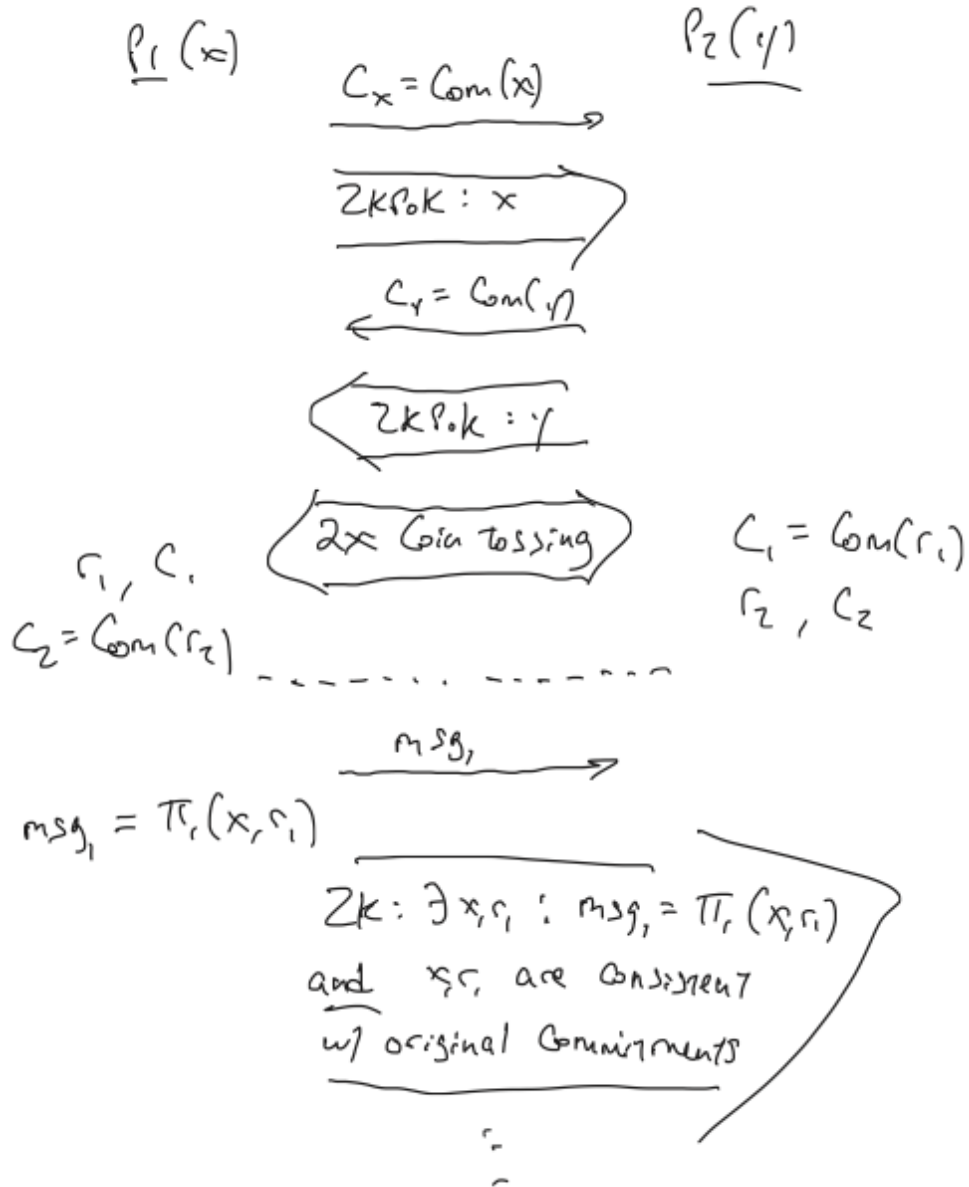 P1 (x)
P2 (y)
Cx = Com(x)
ZKPoK : x
Cy = Com(y)
ZKPoK : y
2x Coin tossing
r1, C1
C2 = Com(r2)
C1 = Com(r1)
r2, C2
msg1
msg1 = π1(x, r1)
ZK: ∃ x, r1 : msg1 = π1(x, r1)
and x, r1 are consistent
w/ original commitments